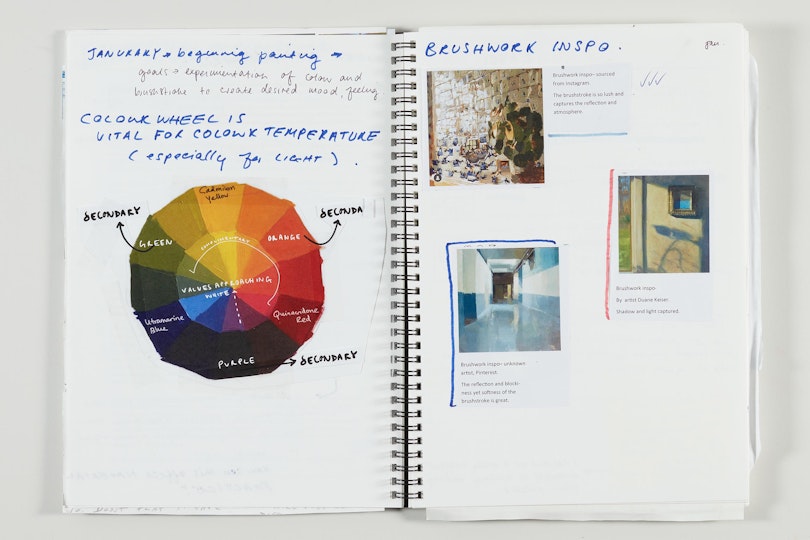 JANURARY → beginnig painting →
goals → experimentation of colour and
brushstroke to create desired mood, feeling
COLOUR WHEEL IS
VITAL FOR COLOUR TEMPERATURE
(especially for LIGHT).
Cadmion
Yellow
SECONDARY
SECONDA
GREEN
ORANGE
COMPLIMENTARY
VALUES APPROACHING
WHITE
Utramarine
Blue
Quinacridone
Red
PURPLE
SECONDARY
BRUSHWORK INSPO.
Jan.
Brushwork inspo- sourced
from Instagram.
The brushstroke is so lush and
captures the reflection and
atmosphere.
Brushwork inspo
By artist Duane Keiser.
Shadow and light captured.
Brushwork inspo- unknown
artist, Pinterest.
The reflection and blocki-
ness yet softness of the
brushstroke is great.